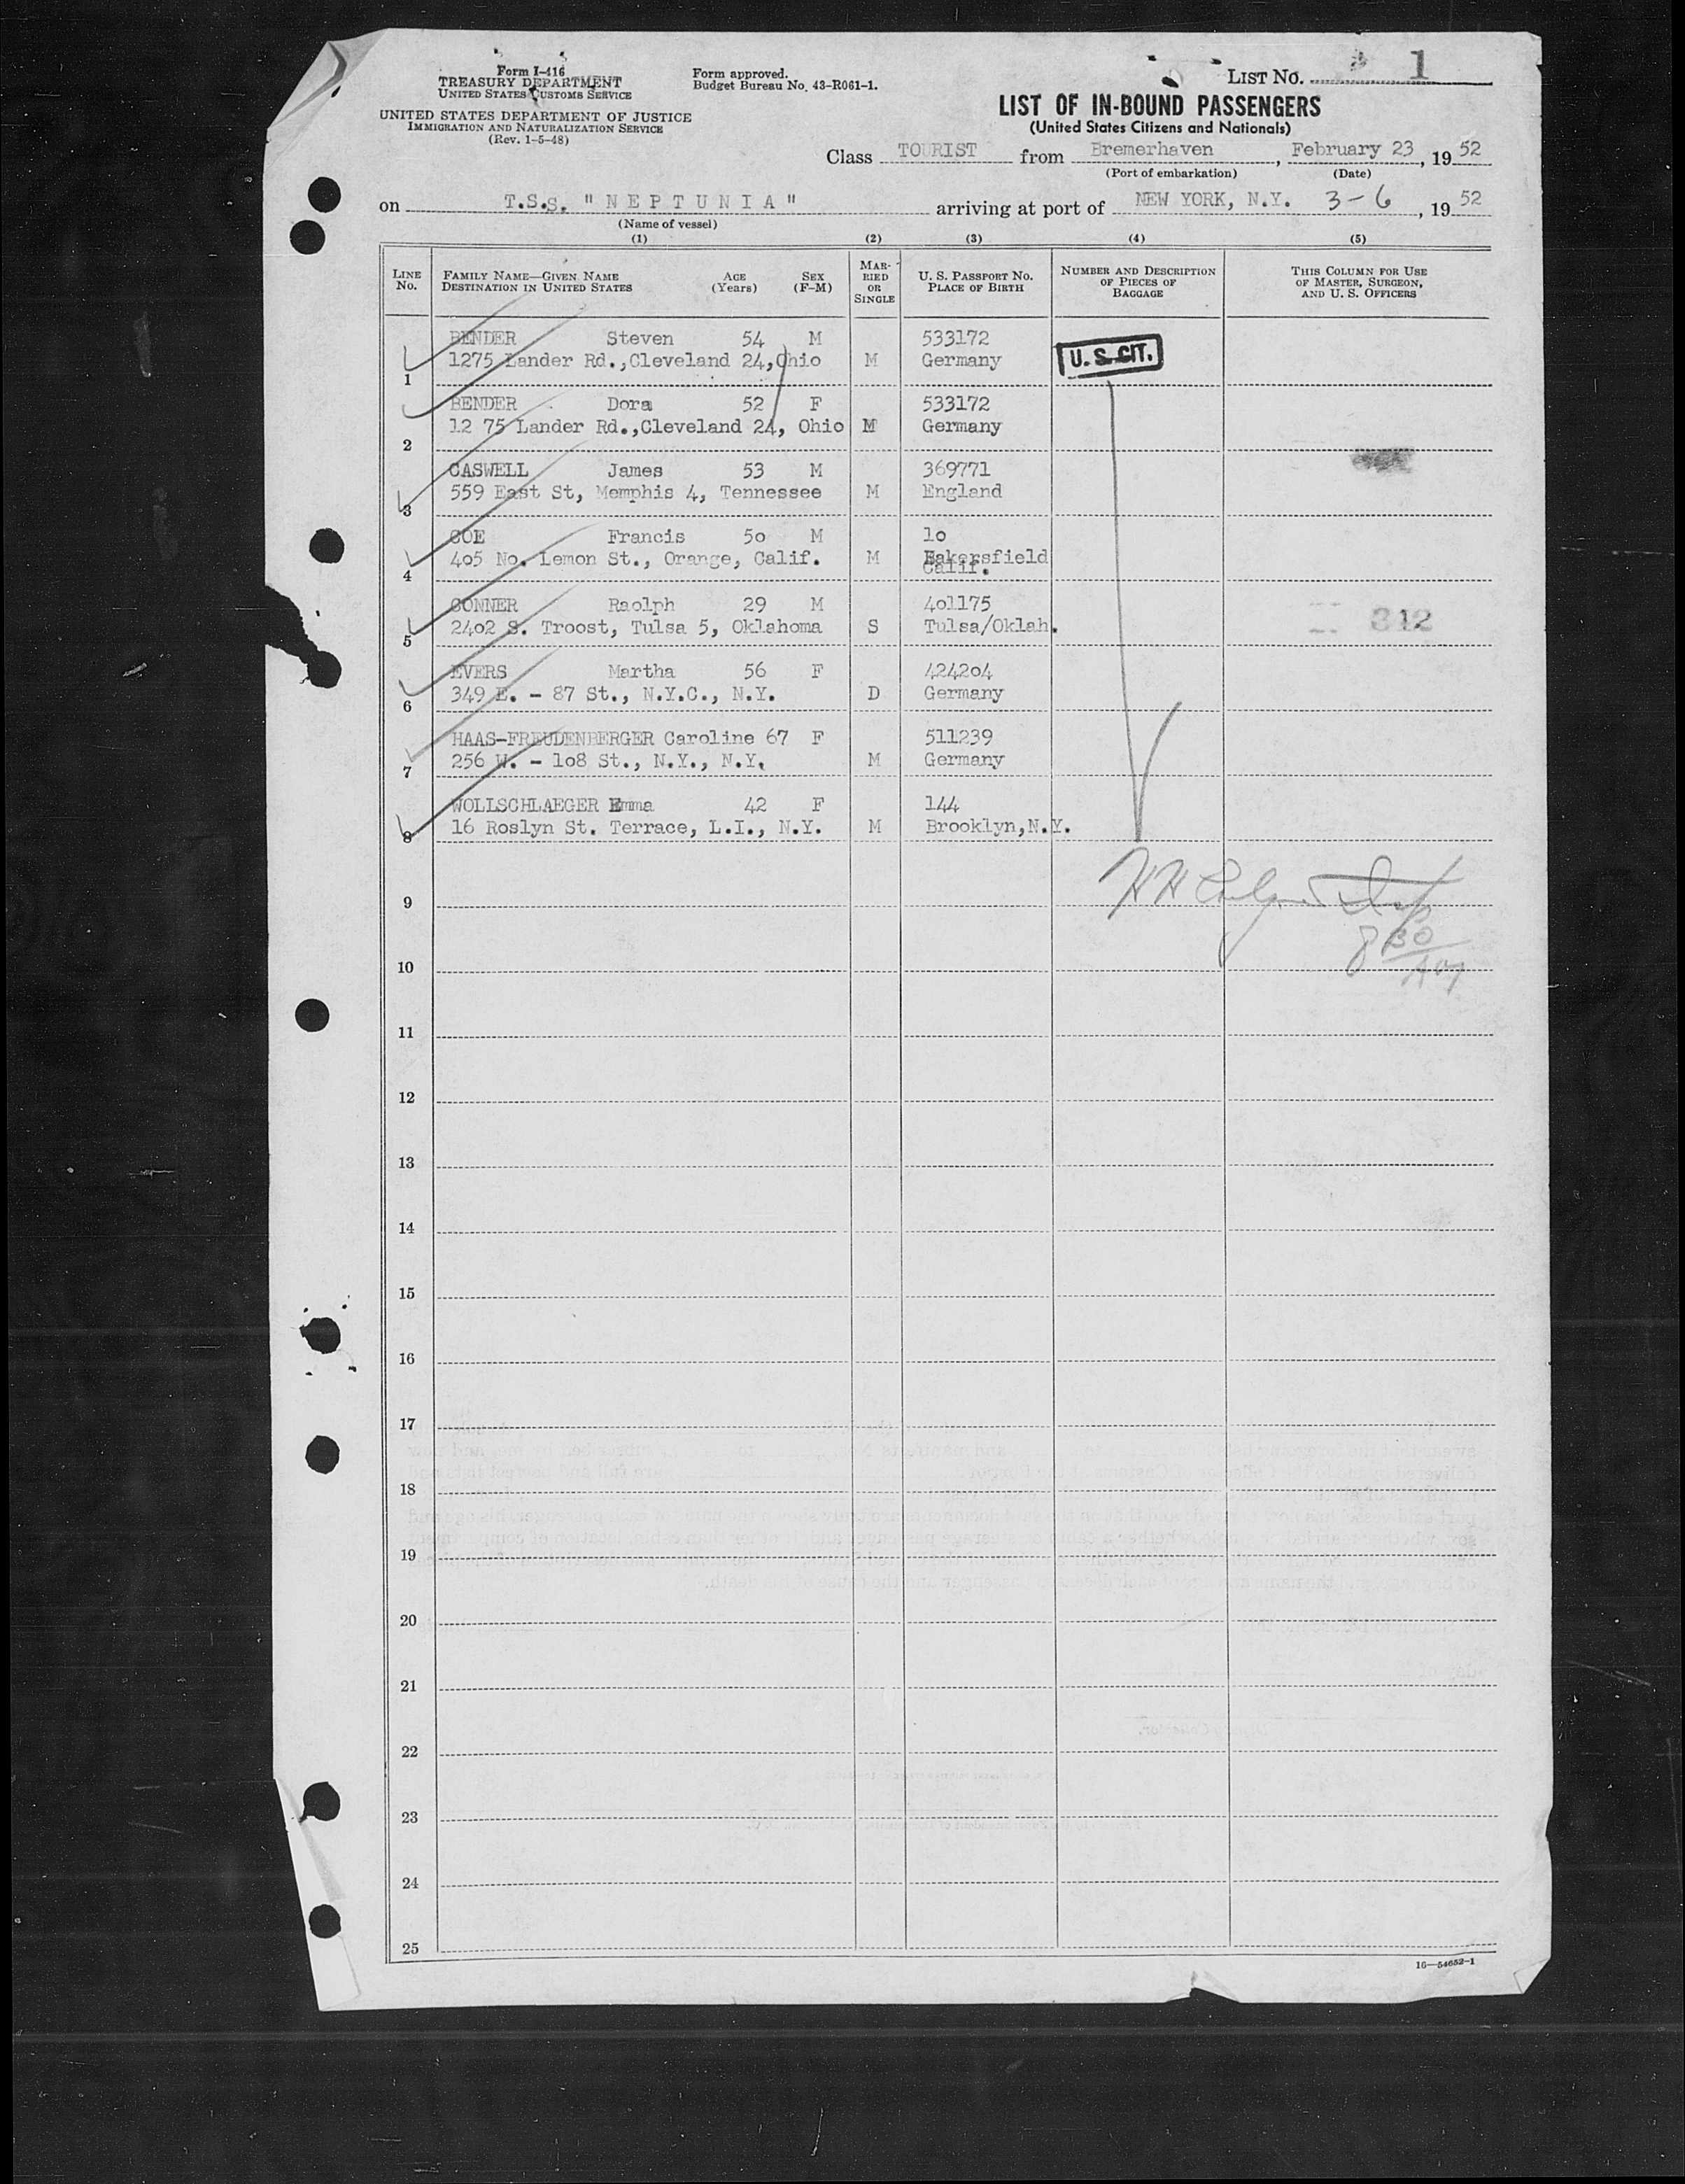 Form I-416
TREASURY DEPARTMENT
UNITED STATES CUSTOMS SERVICE
UNITED STATES DEPARTMENT OF JUSTICE
IMMIGRATION AND NATURALIZATION SERVICE
(Rev. 1-5-48)
Form approved.
Budget Bureau No. 43-R061-1.
LIST NO. 1
LIST OF IN-BOUND PASSENGERS
(United States Citizens and Nationals)
Class TOURIST from Bremerhaven, February 23, 1952
(Port of embarkation) (Date)
on T.S.S. "NEPTUNIA" arriving at port of NEW YORK, N.Y. 3-6, 1952
(Name of vessel)
(1) (2) (3) (4) (5)
LINE No.
FAMILY NAME—GIVEN NAME AGE SEX
DESTINATION IN UNITED STATES (Years) (F-M)
MARRIED OR SINGLE
U. S. PASSPORT NO.
PLACE OF BIRTH
NUMBER AND DESCRIPTION
OF PIECES OF
BAGGAGE
THIS COLUMN FOR USE
OF MASTER, SURGEON,
AND U. S. OFFICERS
BENDER Steven 54 M 533172
1 1275 Lander Rd.,Cleveland 24,Ohio M Germany U. S. CIT.
BENDER Dora 52 F 533172
2 12 75 Lander Rd.,Cleveland 24, Ohio M Germany
CASWELL James 53 M 369771
3 559 East St, Memphis 4, Tennessee M England
COE Francis 5o M 1o
4 4o5 No. Lemon St., Orange, Calif. M Bakersfield
Calif.
CONNER Raolph 29 M 4o1175
5 24o2 S. Troost, Tulsa 5, Oklahoma S Tulsa/Oklah. 312
EVERS Martha 56 F 4242o4
6 349 E. - 87 St., N.Y.C., N.Y. D Germany
HAAS-FREUDENBERGER Caroline 67 F 511239
7 256 W. - 1o8 St., N.Y., N.Y. M Germany
WOLLSCHLAEGER Emma 42 F 144
8 16 Roslyn St. Terrace, L.I., N.Y. M Brooklyn,N.Y.
9
8 30
AM
10
11
12
13
14
15
16
17
18
19
20
21
22
23
24
25
16—54652-1